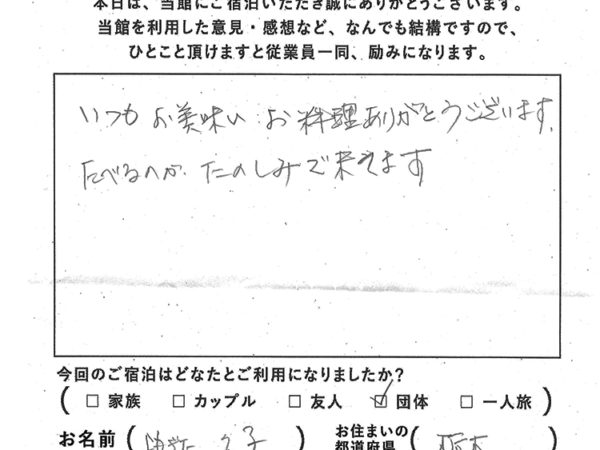 本日は、当館にご宿泊いただき誠にありがとうございます。
当館を利用した意見・感想など、なんでも結構ですので、
ひとこと頂けますと従業員一同、励みになります。
いつもお美味いお料理ありがとうございます。
たべるのがたのしみで来てます
今回のご宿泊はどなたとご利用になりましたか?
( □ 家族 □ カップル □ 友人 ☑ 団体 □ 一人旅 )
お名前 ( ) お住まいの都道府県 ( 栃木